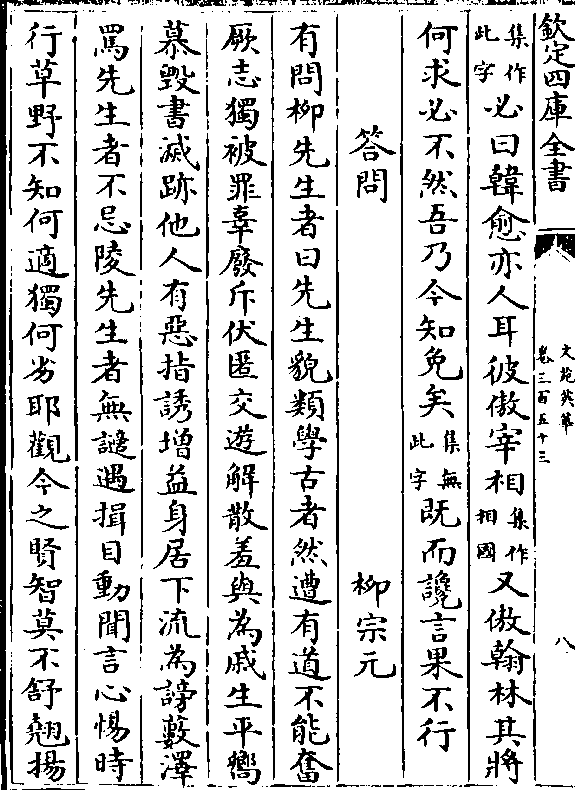 欽定四庫全書
文苑英華
卷三百五十三
八
集作此字必曰韓愈亦人耳彼傲宰相集作相國又傲翰林其將
何求必不然吾乃今知免矣集無此字既而讒言果不行
答問 柳宗元
有問柳先生者曰先生貌類學古者然遭有道不能奮
厥志獨被罪辜廢斥伏匿交遊解散羞與為戚生平嚮
慕毀書滅跡他人有惡指誘增益身居下流為謗藪澤
罵先生者不忌陵先生者無譴遇揖目動聞言心惕時
行草野不知何適獨何劣耶觀今之賢智莫不舒翹揚